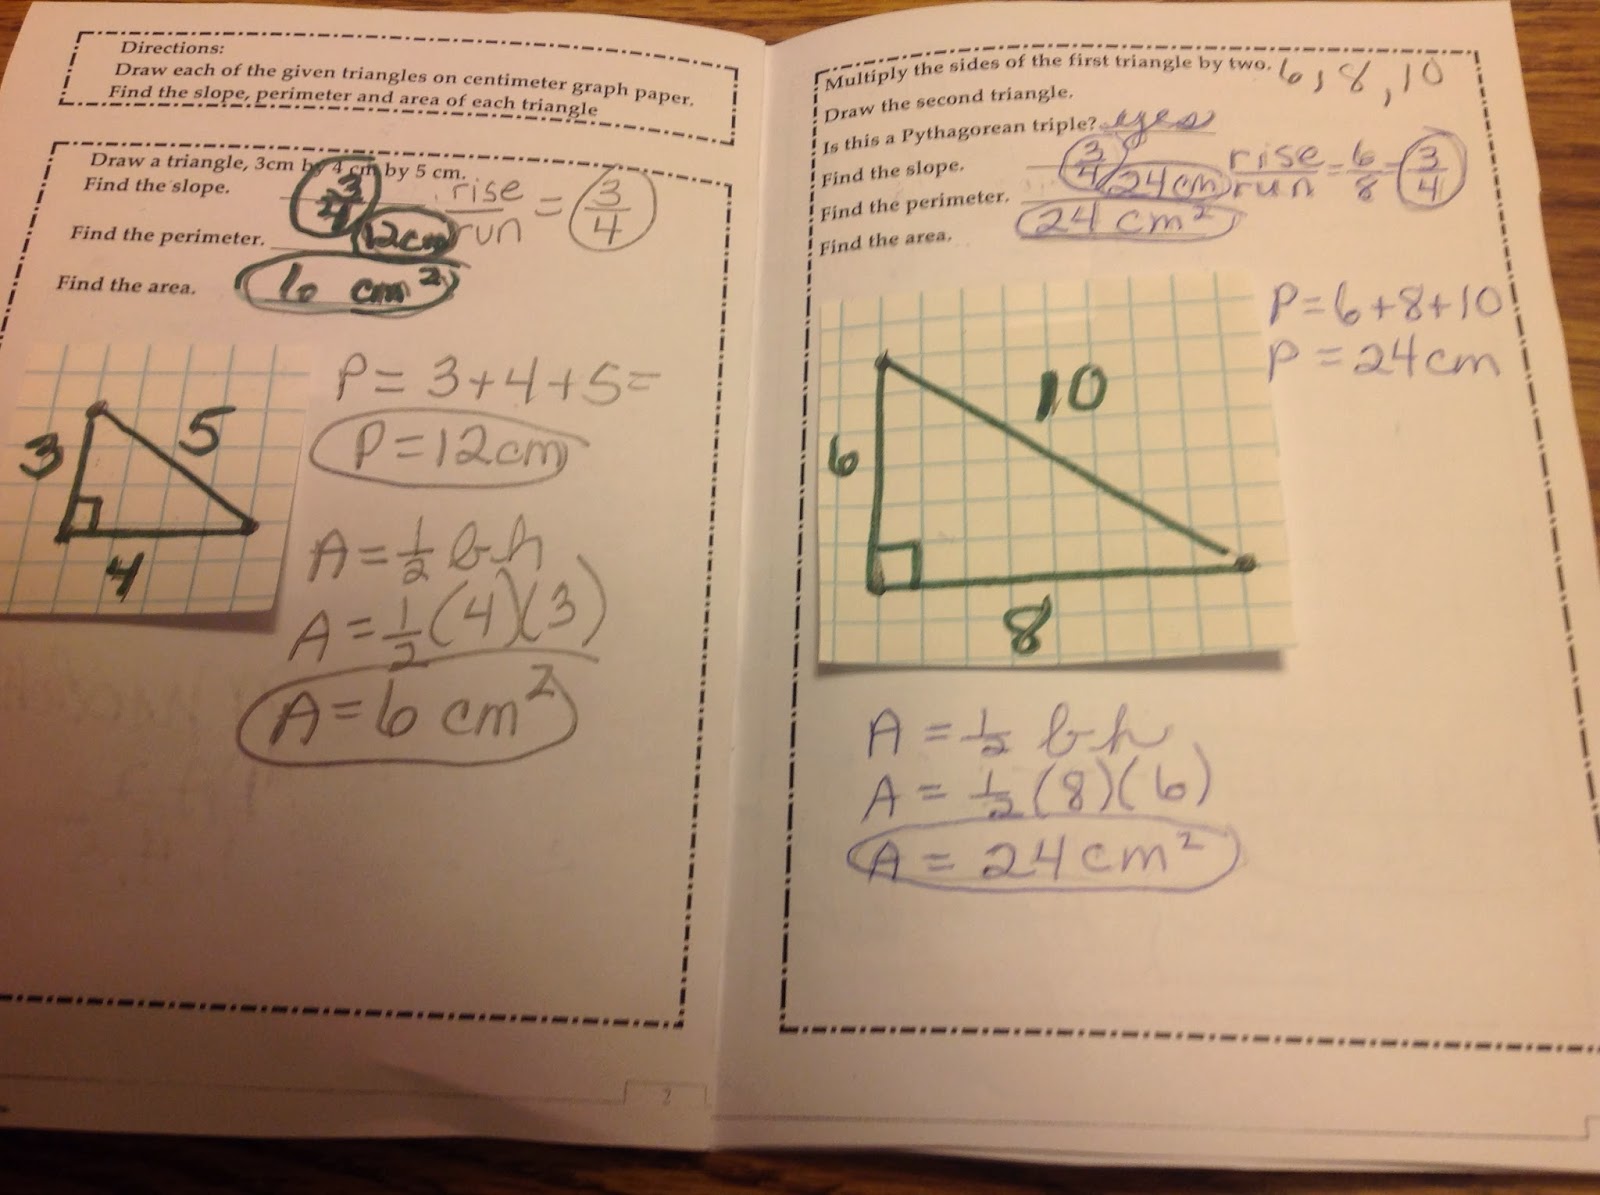 Directions:
Draw each of the given triangles on centimeter graph paper.
Find the slope, perimeter and area of each triangle
Draw a triangle, 3cm by 4 cm by 5 cm.
Find the slope. 3/4 rise/run = 3/4
Find the perimeter. 12cm
Find the area. 6 cm²
3
5
4
P = 3+4+5=
P = 12cm
A = 1/2 bh
A = 1/2 (4)(3)
A = 6 cm²
2
Multiply the sides of the first triangle by two. 6, 8, 10
Draw the second triangle.
Is this a Pythagorean triple? yes
Find the slope. 3/4 rise/run = 6/8 = 3/4
Find the perimeter. 24cm
Find the area. 24 cm²
P = 6+8+10
P = 24cm
6
10
8
A = 1/2 bh
A = 1/2 (8)(6)
A = 24 cm²